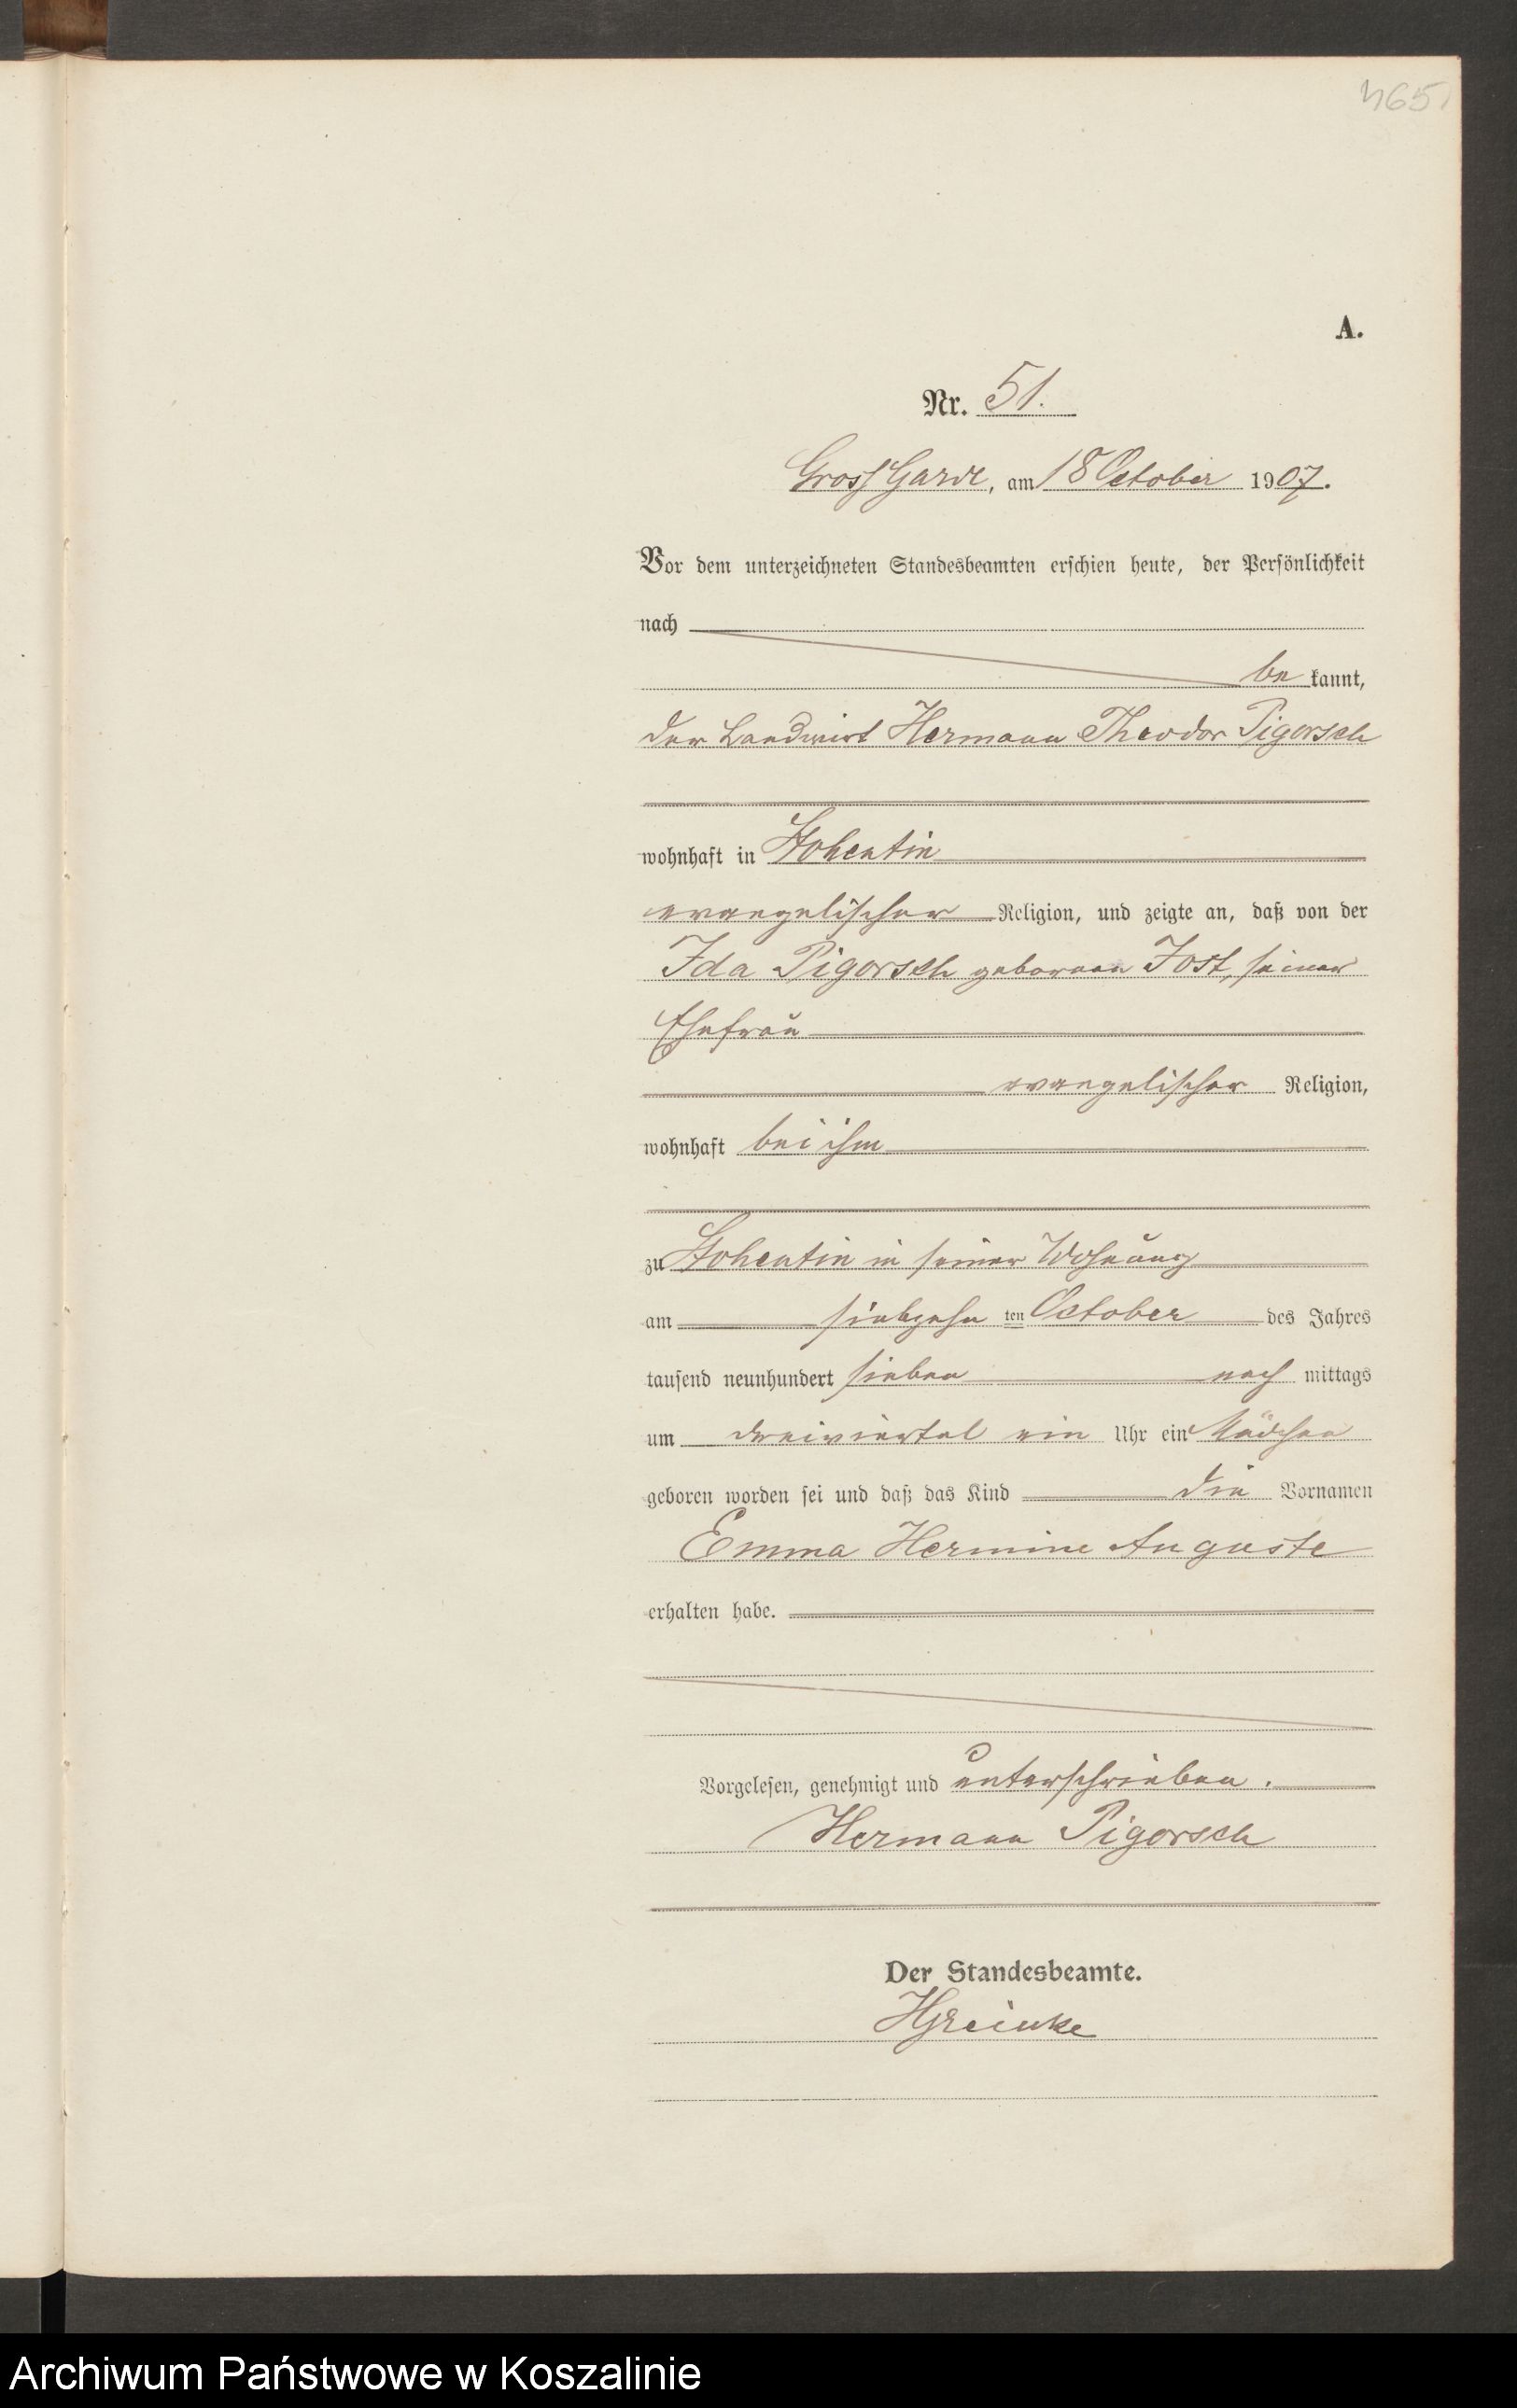 4651
A.
Nr. 51.
Gross Garde, am 18 October 1907.
Vor dem unterzeichneten Standesbeamten erschien heute, der Persönlichkeit
nach
be kannt,
der Landwirt Hermann Theodor Pigorsch
wohnhaft in Stohentin
evangelischer Religion, und zeigte an, daß von der
Ida Pigorsch geborenen Jost, seiner
Ehefrau
evangelischer Religion,
wohnhaft bei ihm
zu Stohentin in seiner Wohnung
am siebzehn ten October des Jahres
tausend neunhundert sieben nach mittags
um dreiviertel ein Uhr ein Mädchen
geboren worden sei und daß das Kind die Vornamen
Emma Hermine Auguste
erhalten habe.
Vorgelesen, genehmigt und unterschrieben.
Hermann Pigorsch
Der Standesbeamte.
Archiwum Państwowe w Koszalinie